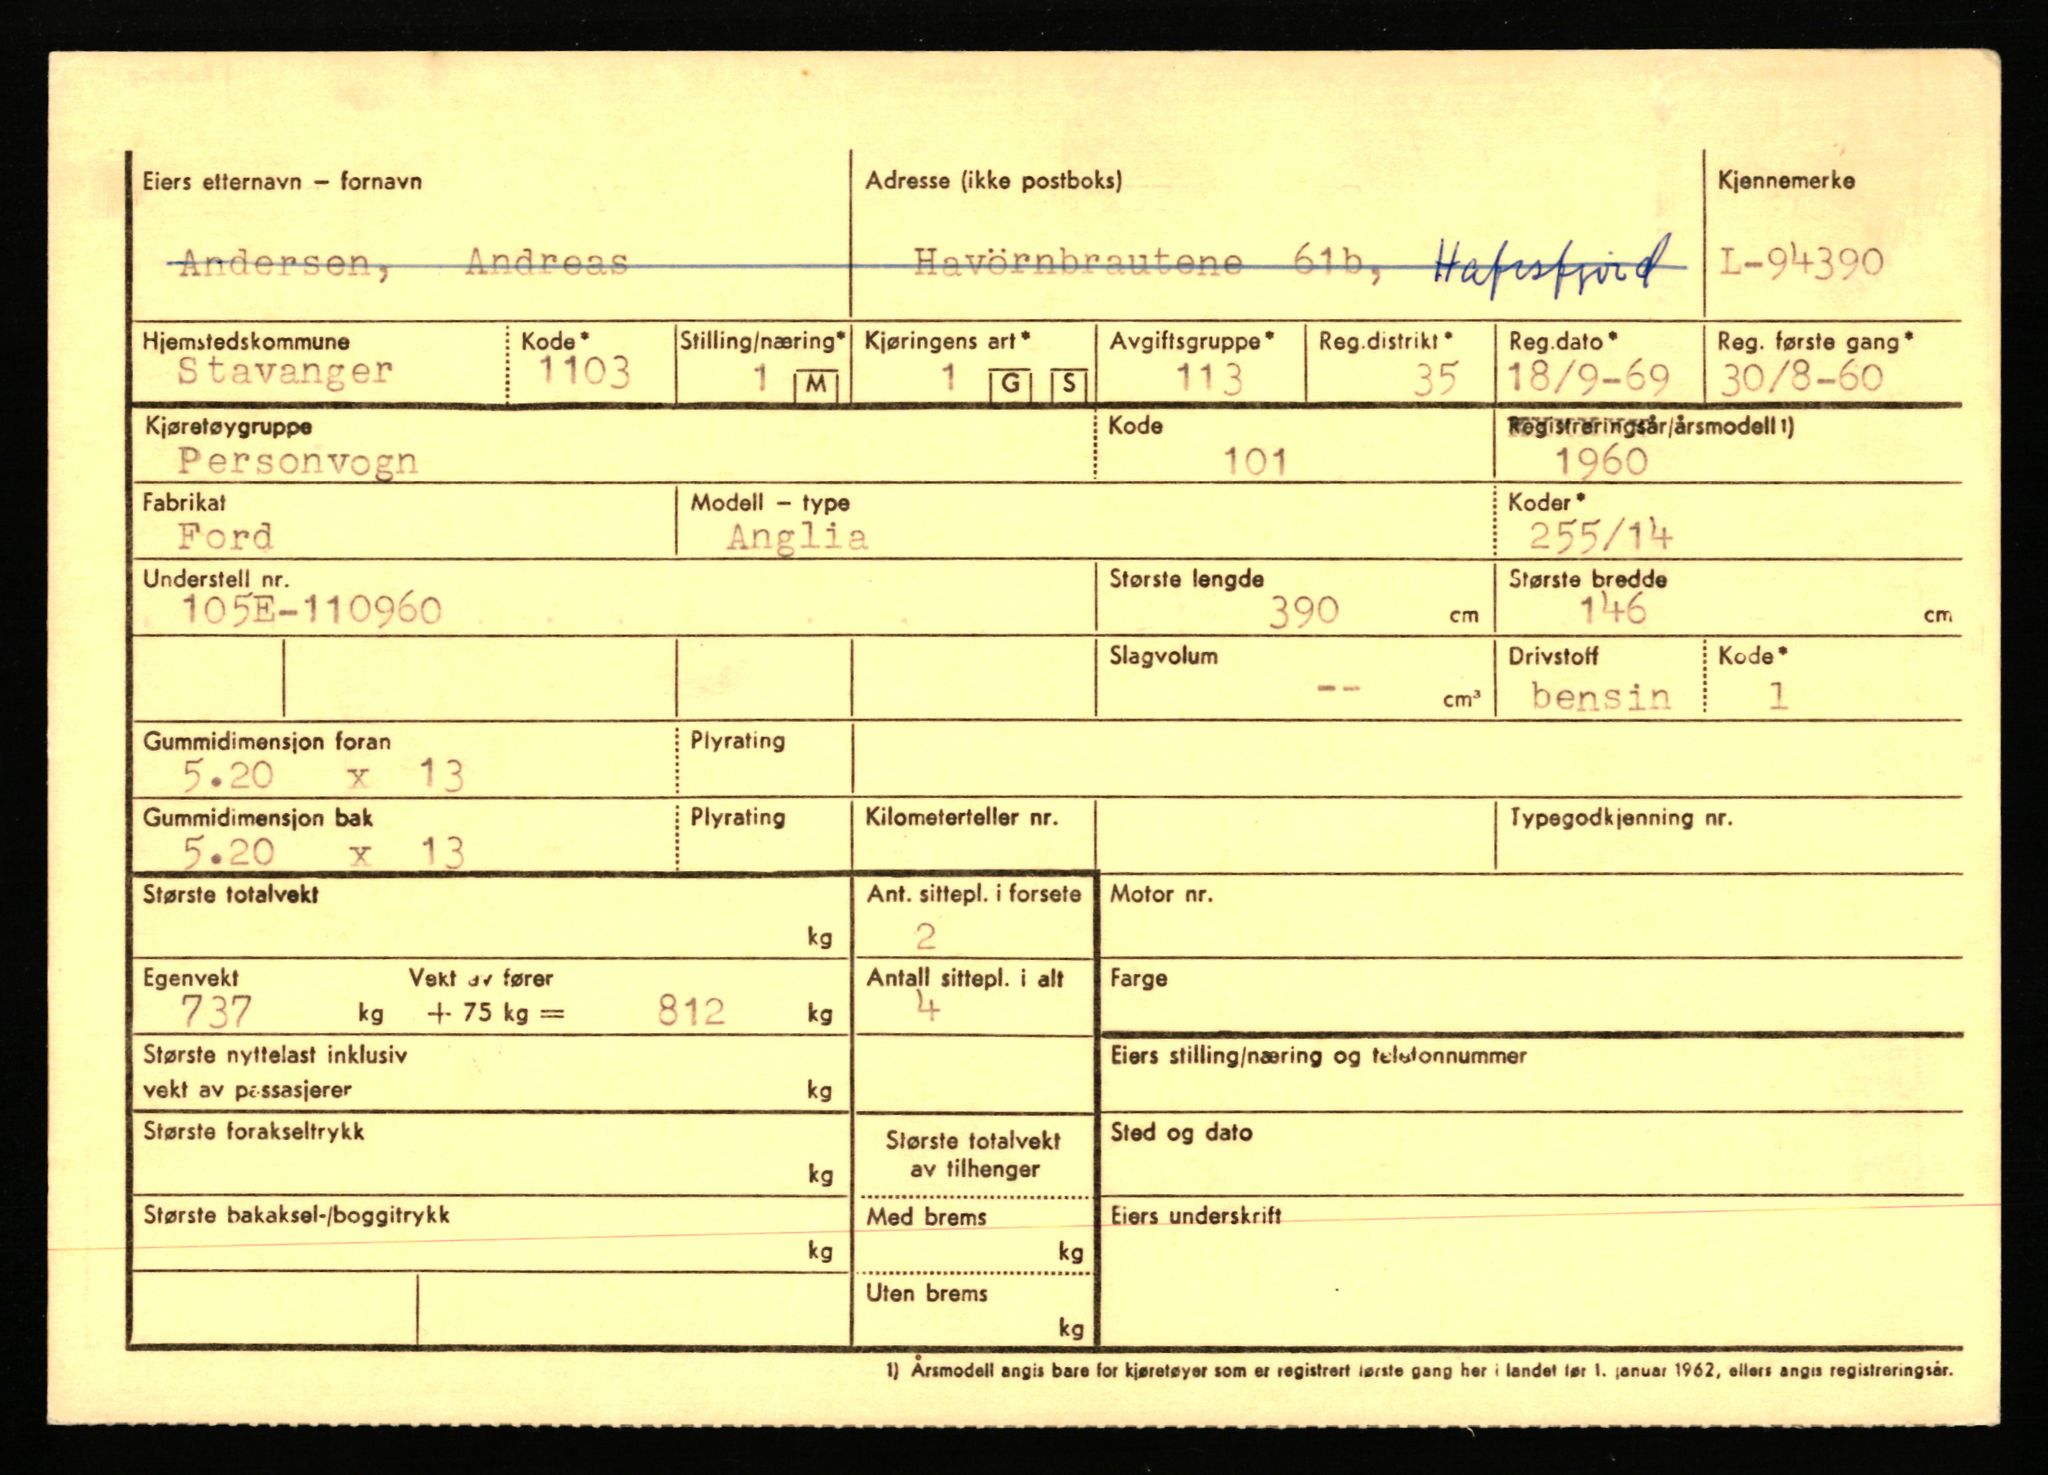 Eiers etternavn – fornavn Adresse (ikke postboks) Kjennemerke
Andersen, Andreas Havörnbrautene 61b, Hafrsfjord L-94390
Hjemstedskommune Kode* Stilling/næring* Kjøringens art* Avgiftsgruppe* Reg.distrikt* Reg.dato* Reg. første gang*
Stavanger 1103 1 M 1 G S 113 35 18/9-69 30/8-60
Kjøretøygruppe Kode Registreringsår/årsmodell 1)
Personvogn 101 1960
Fabrikat Modell – type Koder*
Ford Anglia 255/14
Understell nr. Største lengde Største bredde
105E-110960 390 cm 146 cm
Slagvolum Drivstoff Kode*
-- cm³ bensin 1
Gummidimensjon foran Plyrating
5.20 x 13
Gummidimensjon bak Plyrating Kilometerteller nr. Typegodkjenning nr.
5.20 x 13
Største totalvekt Ant. sittepl. i forsete Motor nr.
kg 2
Egenvekt Vekt av fører Antall sittepl. i alt Farge
737 kg + 75 kg = 812 kg 4
Største nyttelast inklusiv Eiers stilling/næring og telefonnummer
vekt av passasjerer kg
Største forakseltrykk Største totalvekt Sted og dato
kg av tilhenger
Største bakaksel-/boggitrykk Med brems Eiers underskrift
kg kg
Uten brems
kg
1) Årsmodell angis bare for kjøretøyer som er registrert første gang her i landet før 1. januar 1962, ellers angis registreringsår.